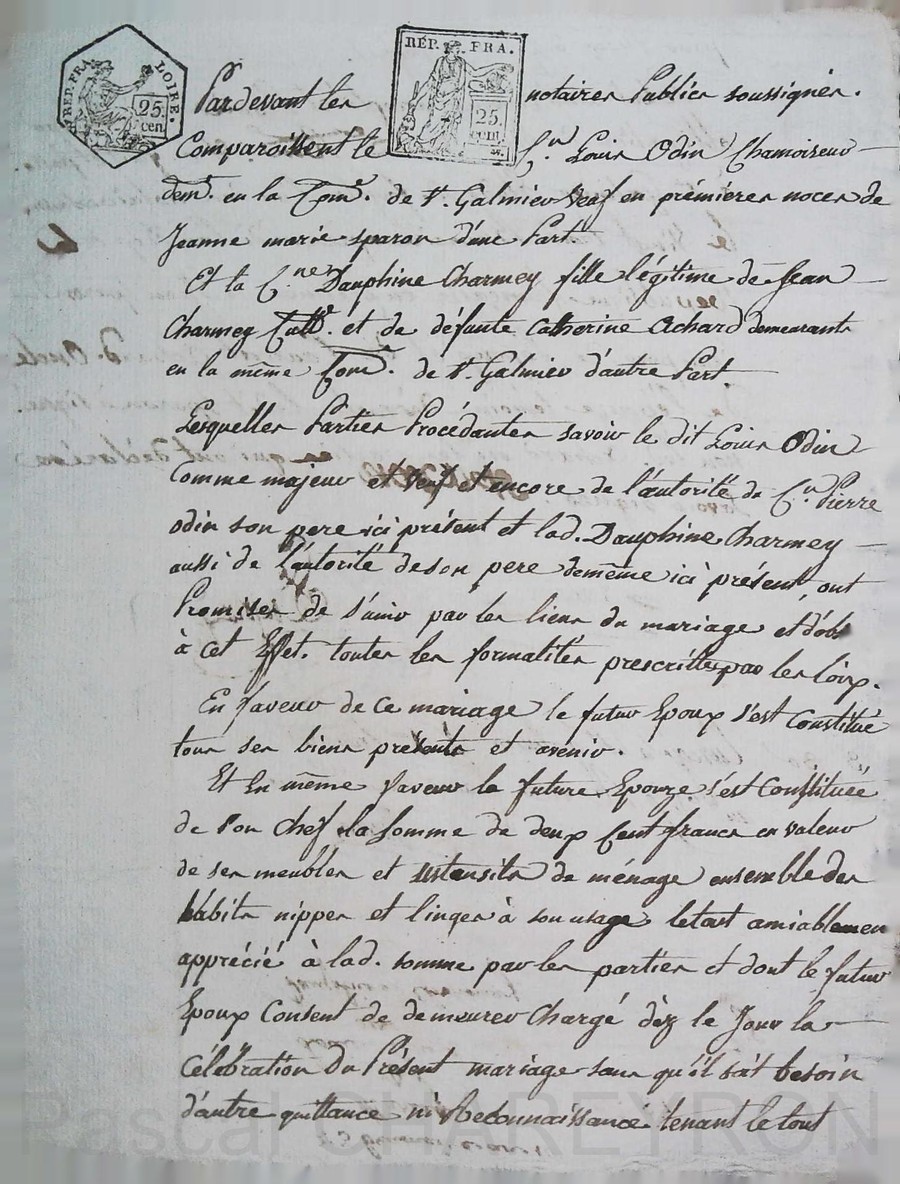 REP. FRA. LOIRE.
25. cen.
REP. FRA.
25. cen.
Pardevant les notaires Publics soussignés.
Comparoissent le C.n Louis Odin Chamoiseur
dem.t en la Com.e de s.t Galmier veuf en prémieres noces de
Jeanne marie sparon d'une Part.
Et la C.ne Dauphine Charmey fille légitime de Jean
Charmey Cult.r et de défunte Catherine Achard demeurants
en la même Com.e de s.t Galmier d'autre Part.
Lesquelles Parties Procédantes savoir le dit Louis Odin
Comme majeur et veuf et encore de l'autorité de C.n Pierre
odin son pere ici présent et lad. Dauphine Charmey
aussi de l'autorité de son pere demême ici présent, ont
Promises de s'unir par les liens du mariage et d'obs
à cet Effet. toutes les formalités prescrittes par les loix.
En faveur de ce mariage le futur Epoux s'est Constitué
tous ses biens présents et avenir.
Et En même faveur la future Epouze s'est Constituée
de son Chef la somme de deux Cent francs en valeur
de ses meubles et ustensils de ménage ensemble des
habits nippes et linges à son usage le tout amiablemen
apprécié à lad. somme par les parties et dont le futur
Epoux Consent de demeurer Chargé dèz le Jour la
Célébration du Présent mariage sans qu'il soit besoin
d'autre quittance ni Reconnaissance tenant le tout
Pascal CHAREYRON